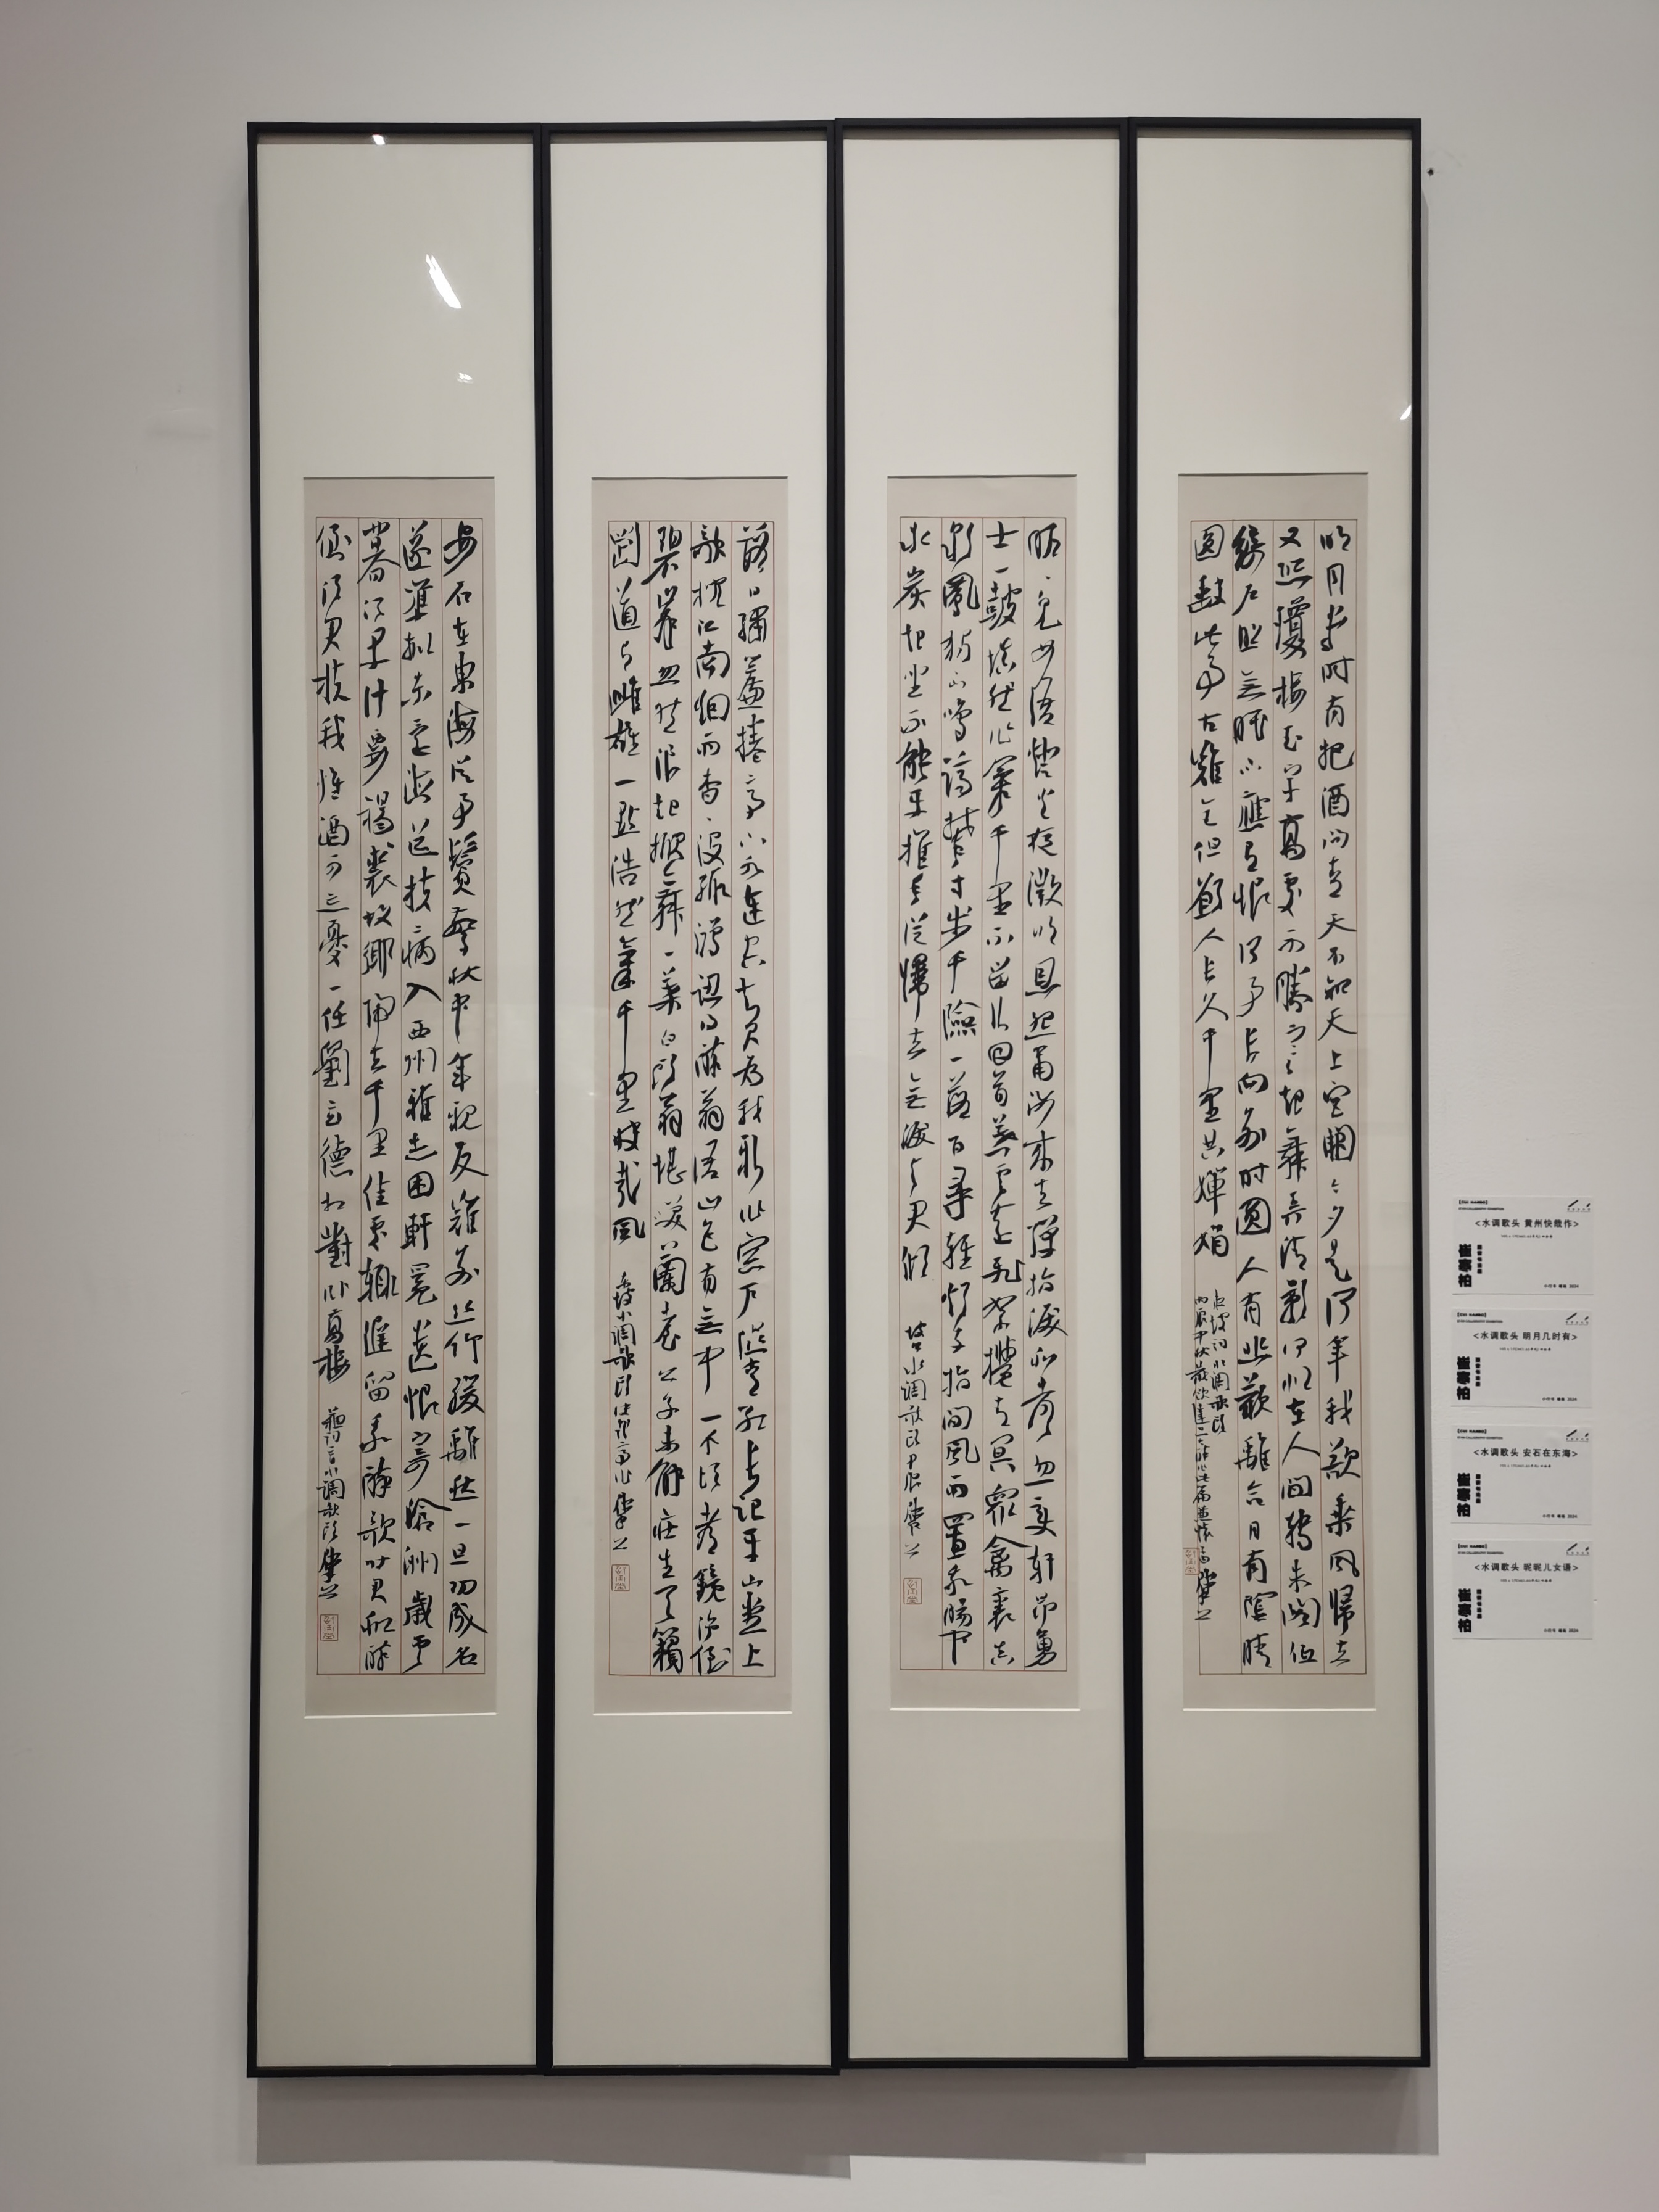 明月幾時有把酒問青天不知天上宫闕今夕是何年我欲乘風歸去
又恐瓊樓玉宇高處不勝寒起舞弄清影何似在人間轉朱閣低
綺户照無眠不應有恨何事長向别時圓人有悲歡離合月有陰晴
圓缺此事古難全但願人長久千里共嬋娟
東坡詞水調歌頭
丙辰中秋歡飲達旦大醉作此篇兼懷子由
昵昵兒女語燈火夜微明恩怨爾汝來去彈指淚和聲忽變軒昂勇
士一鼓填然作氣千里不留行回首暮雲遠飛絮攪青冥衆禽裏真
彩鳳獨不鳴躋攀寸步千險一落百尋輕煩子指間風雨置我腸中
冰炭起坐不能平推手從歸去無淚與君傾
水調歌頭
落日繡簾捲亭下水連空知君為我新作窗户濕青紅長記平山堂上
欹枕江南烟雨杳杳没孤鴻認得醉翁語山色有無中一千頃都鏡净倒
碧峯忽然浪起掀舞一葉白頭翁堪笑蘭臺公子未解莊生天籟
剛道有雌雄一點浩然氣千里快哉風
水調歌頭
安石在東海從事鬢驚秋中年親友難别絲竹緩離愁一旦功成名
遂準擬東還海道扶病入西州雅志困軒冕遺恨寄滄洲歲云
暮須早計要褐裘故鄉歸去千里佳處輒遲留我醉歌時君和醉
倒須君扶我惟酒可忘憂一任劉玄德相對卧高樓
水調歌頭
<水调歌头 黄州快哉作>
崔寒柏
<水调歌头 明月几时有>
崔寒柏
<水调歌头 安石在东海>
崔寒柏
<水调歌头 昵昵儿女语>
崔寒柏